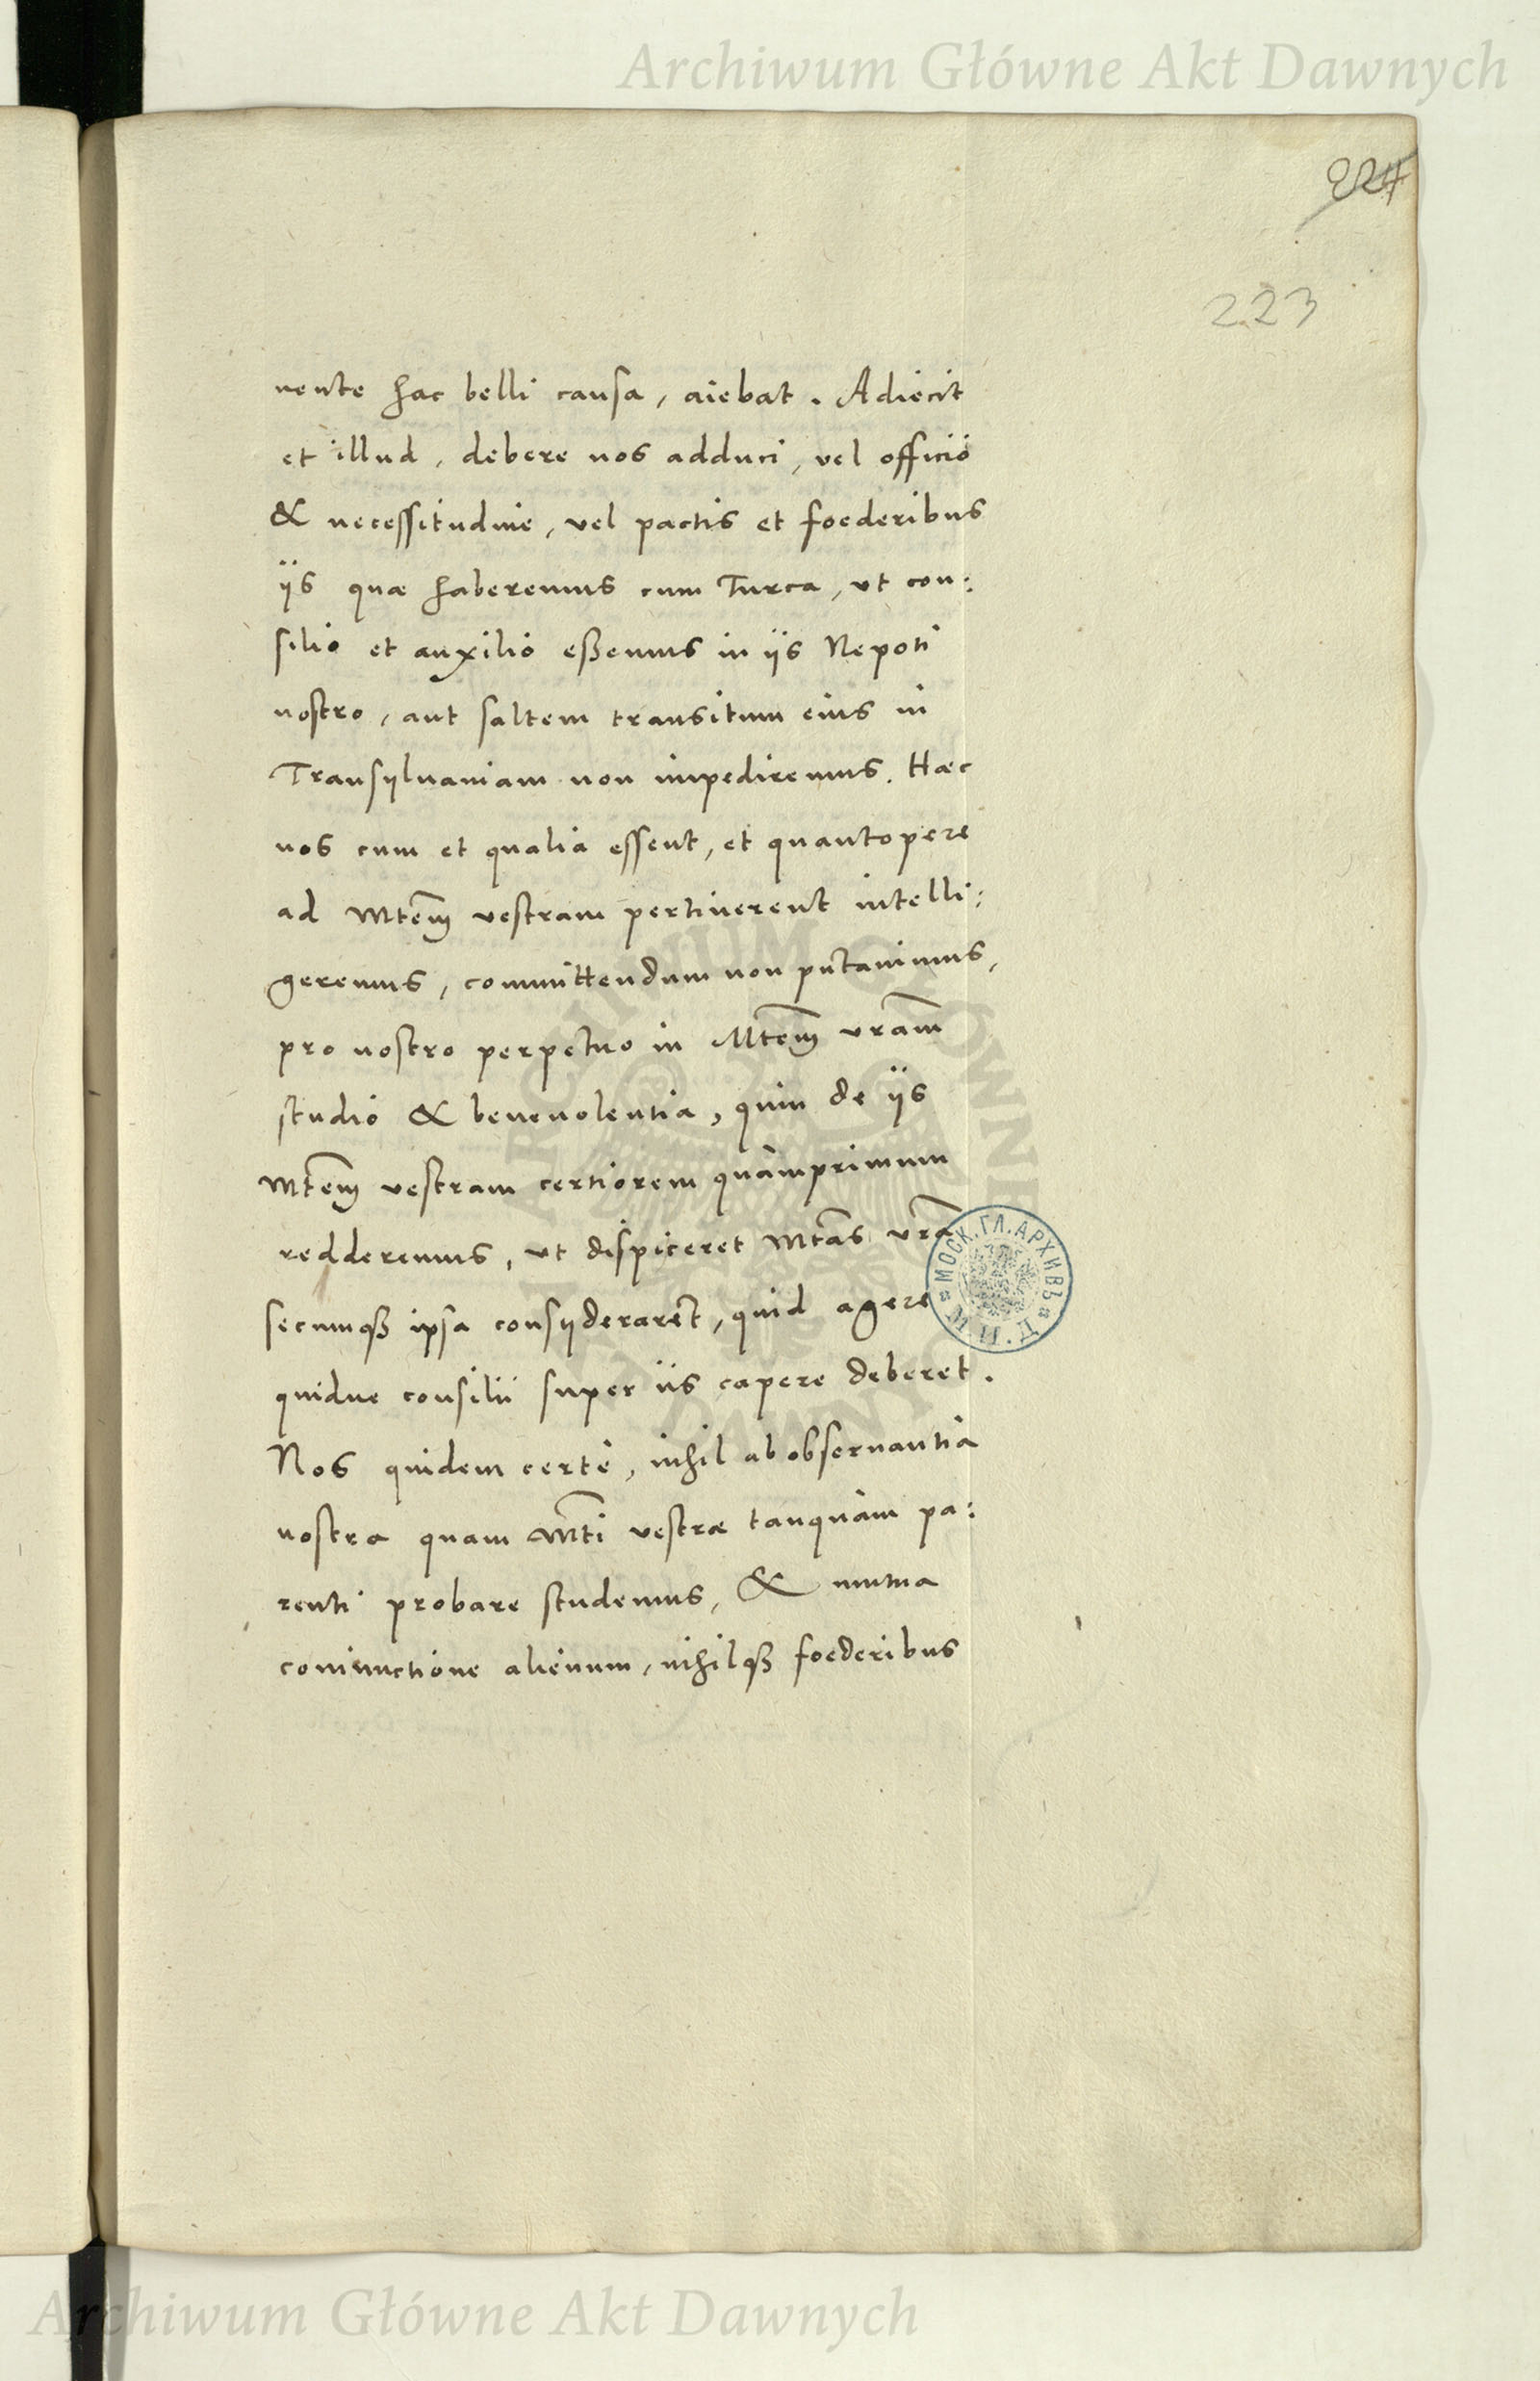 Archiwum Główne Akt Dawnych
224
223
nente hac belli causa, aiebat. Adiecit
et illud, debere nos adduci, vel officio
& necessitudine, vel pactis et foederibus
ijs quæ haberemus cum Turca, vt con:
silio et auxilio eßemus in ijs Nepoti
nostro, aut saltem transitum eius in
Transyluaniam non impediremus. Hæc
nos cum et qualia essent, et quantopere
ad Mtem̃ vestram pertinerent intelli:
geremus, committendum non putauimus,
pro nostro perpetuo in Mtem̃ vram̃
studio & beneuolentia, quin de ijs
Mtem̃ vestram certiorem quàmprimum
redderemus, vt dispiceret Mtãs vrã
secumqȝ ipsa consyderaret, quid agere
quidue consilii super iis capere deberet.
Nos quidem certè, nihil ab obseruantia
nostra quam Mti̋ vestræ tanquàm pa:
renti probare studemus, & mutua
coniunctione alienum, nihilqȝ foederibus
МОСК. ГЛ. АРХИВЪ
М. И. Д.
ARCHIWUM GŁÓWNE AKT DAWNYCH
Archiwum Główne Akt Dawnych